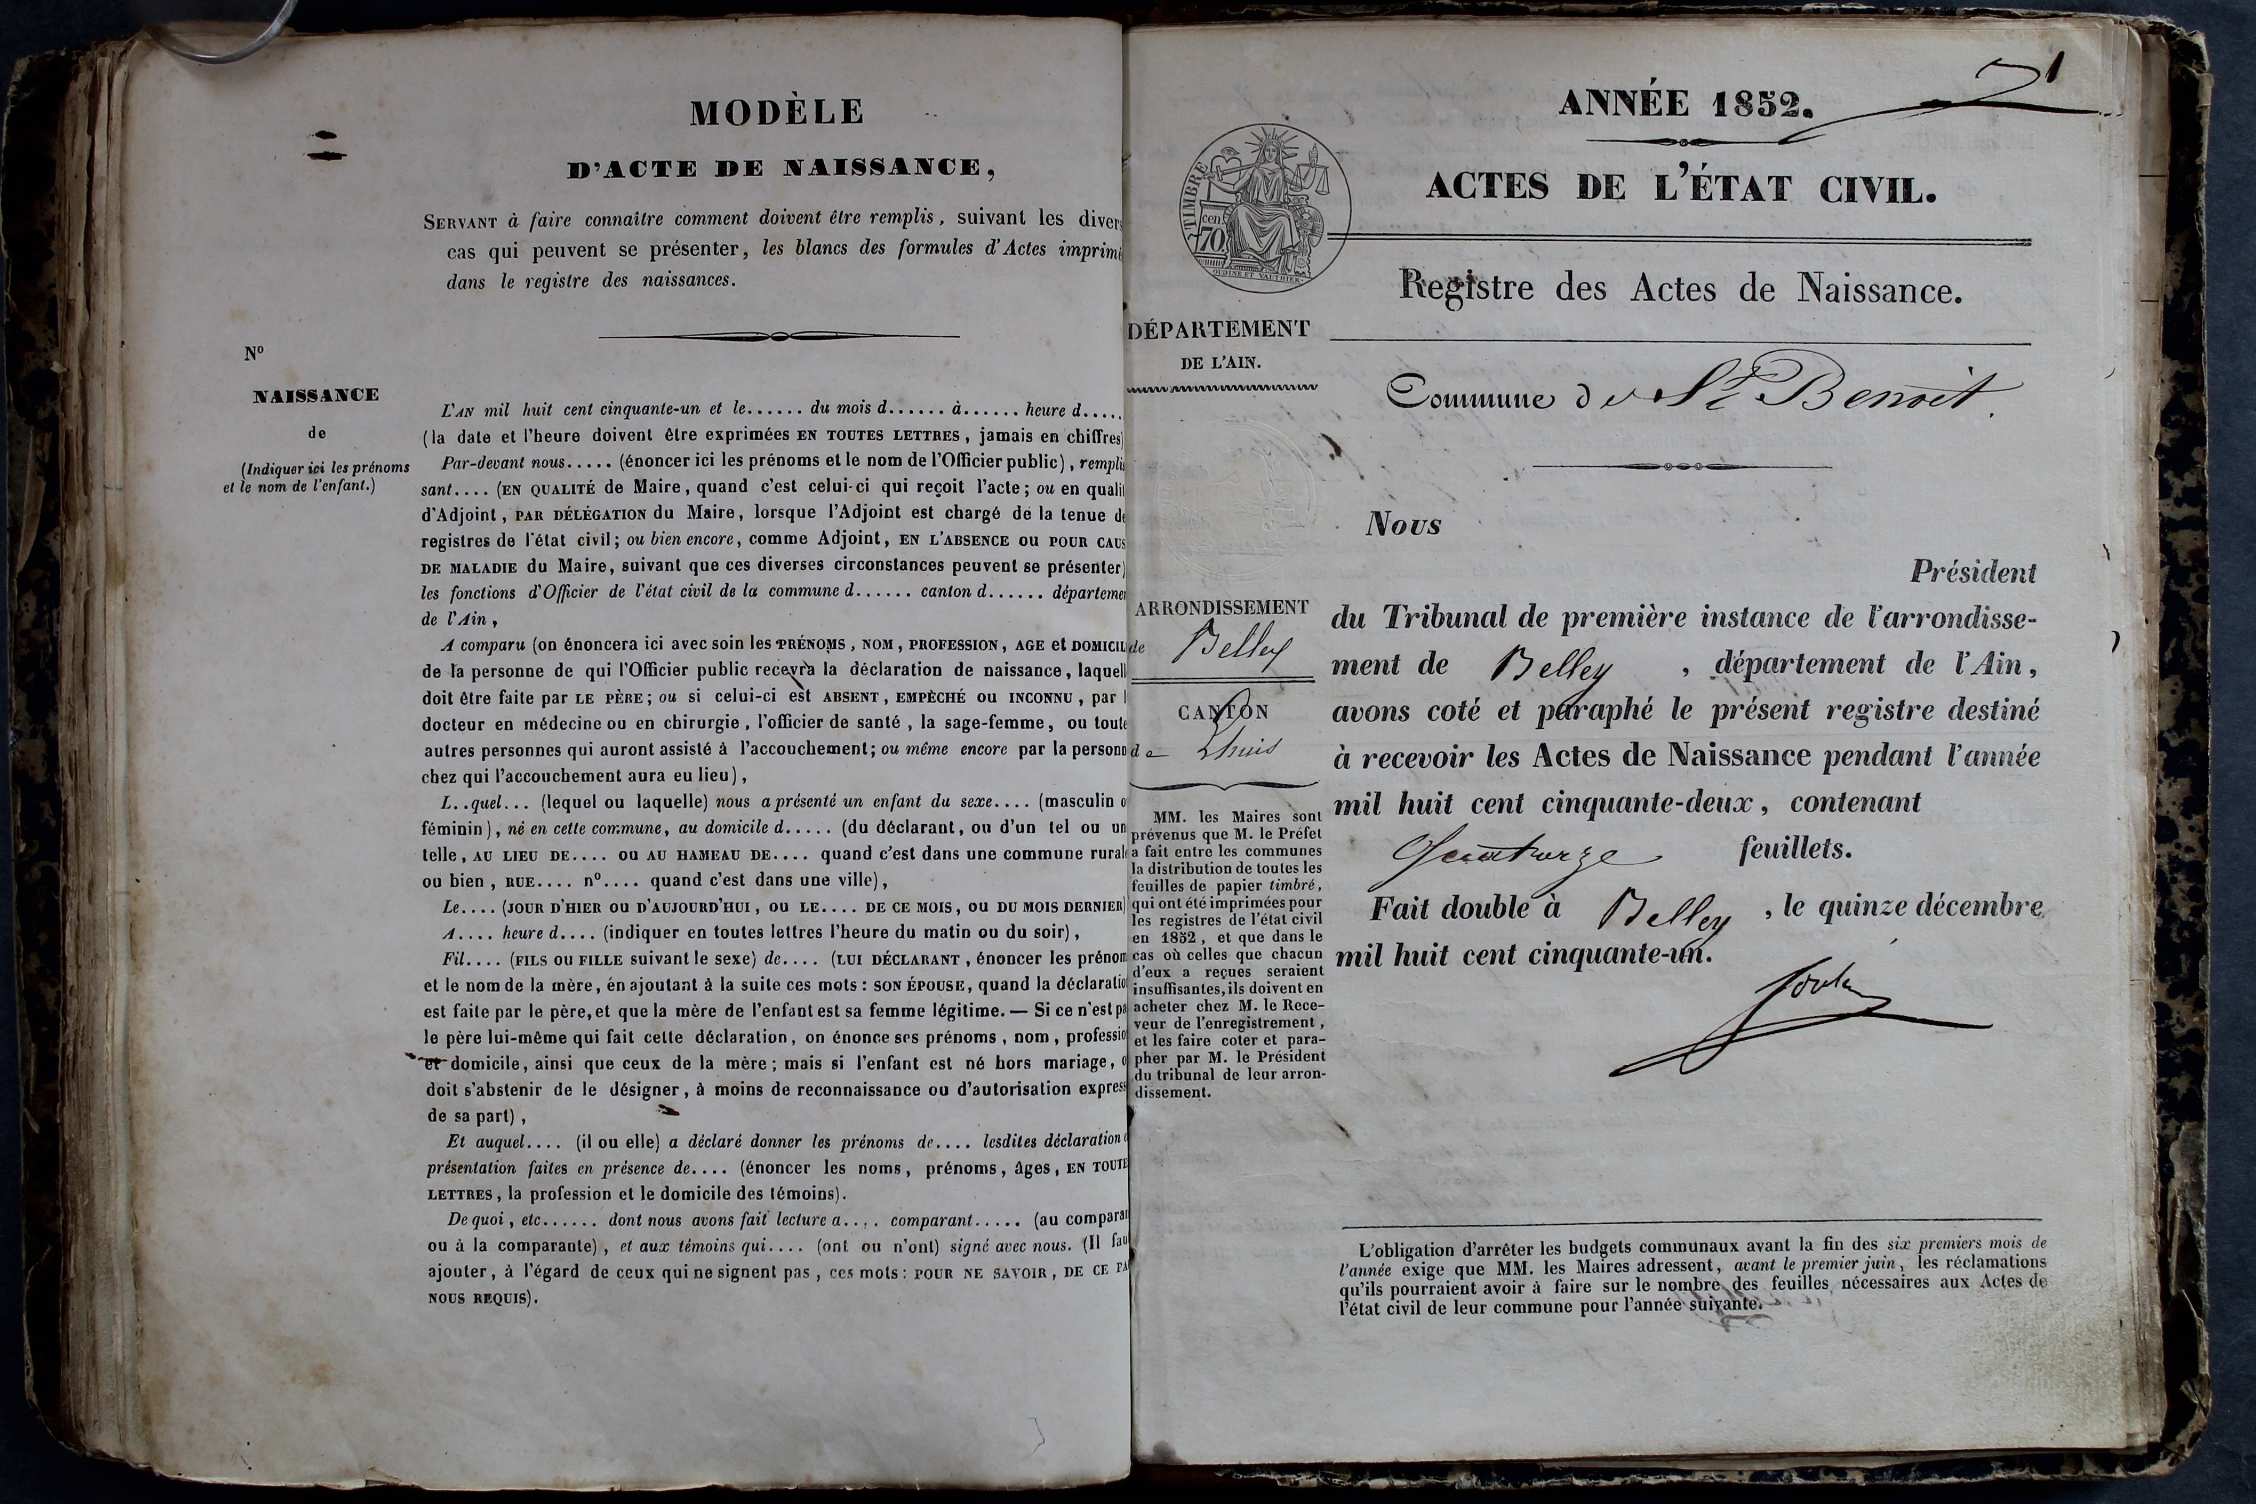 MODÈLE
D'ACTE DE NAISSANCE,
SERVANT à faire connaître comment doivent être remplis, suivant les divers
cas qui peuvent se présenter, les blancs des formules d'Actes imprimé
dans le registre des naissances.
N°
NAISSANCE
de
(Indiquer ici les prénoms
et le nom de l'enfant.)
L'AN mil huit cent cinquante-un et le...... du mois d...... à...... heure d.....
(la date et l'heure doivent être exprimées EN TOUTES LETTRES, jamais en chiffres)
Par-devant nous..... (énoncer ici les prénoms et le nom de l'Officier public), remplis
sant.... (EN QUALITÉ de Maire, quand c'est celui-ci qui reçoit l'acte; ou en qualit
d'Adjoint, PAR DÉLÉGATION du Maire, lorsque l'Adjoint est chargé de la tenue de
registres de l'état civil; ou bien encore, comme Adjoint, EN L'ABSENCE OU POUR CAUS
DE MALADIE du Maire, suivant que ces diverses circonstances peuvent se présenter)
les fonctions d'Officier de l'état civil de la commune d...... canton d...... départemen
de l'Ain,
A comparu (on énoncera ici avec soin les PRÉNOMS, NOM, PROFESSION, AGE et DOMICIL
de la personne de qui l'Officier public recevra la déclaration de naissance, laquell
doit être faite par LE PÈRE; ou si celui-ci est ABSENT, EMPÊCHÉ OU INCONNU, par l
docteur en médecine ou en chirurgie, l'officier de santé, la sage-femme, ou toute
autres personnes qui auront assisté à l'accouchement; ou même encore par la personn
chez qui l'accouchement aura eu lieu),
L..quel... (lequel ou laquelle) nous a présenté un enfant du sexe.... (masculin o
féminin), né en cette commune, au domicile d..... (du déclarant, ou d'un tel ou un
telle, AU LIEU DE.... OU AU HAMEAU DE.... quand c'est dans une commune rurale
ou bien, RUE.... n°.... quand c'est dans une ville),
Le.... (JOUR D'HIER OU D'AUJOURD'HUI, OU LE.... DE CE MOIS, OU DU MOIS DERNIER)
A.... heure d.... (indiquer en toutes lettres l'heure du matin ou du soir),
Fil.... (FILS OU FILLE suivant le sexe) de.... (LUI DÉCLARANT, énoncer les prénom
et le nom de la mère, en ajoutant à la suite ces mots: SON ÉPOUSE, quand la déclaratio
est faite par le père, et que la mère de l'enfant est sa femme légitime. — Si ce n'est pa
le père lui-même qui fait cette déclaration, on énonce ses prénoms, nom, professio
et domicile, ainsi que ceux de la mère; mais si l'enfant est né hors mariage, o
doit s'abstenir de le désigner, à moins de reconnaissance ou d'autorisation express
de sa part),
Et auquel.... (il ou elle) a déclaré donner les prénoms de.... lesdites déclaration e
présentation faites en présence de.... (énoncer les noms, prénoms, âges, EN TOUTE
LETTRES, la profession et le domicile des témoins).
De quoi, etc...... dont nous avons fait lecture a.... comparant..... (au comparan
ou à la comparante), et aux témoins qui.... (ont ou n'ont) signé avec nous. (Il fau
ajouter, à l'égard de ceux qui ne signent pas, ces mots: POUR NE SAVOIR, DE CE PA
NOUS REQUIS).
1
ANNÉE 1852.
TIMBRE
70 cen
OUDINÉ ET VAUTHIER
ACTES DE L'ÉTAT CIVIL.
Registre des Actes de Naissance.
DÉPARTEMENT
DE L'AIN.
Commune de St Benoit.
ARRONDISSEMENT
de Belley
CANTON
de Lhuis
MM. les Maires sont
prévenus que M. le Préfet
a fait entre les communes
la distribution de toutes les
feuilles de papier timbré,
qui ont été imprimées pour
les registres de l'état civil
en 1852, et que dans le
cas où celles que chacun
d'eux a reçues seraient
insuffisantes, ils doivent en
acheter chez M. le Rece-
veur de l'enregistrement,
et les faire coter et para-
pher par M. le Président
du tribunal de leur arron-
dissement.
Nous
Président
du Tribunal de première instance de l'arrondisse-
ment de Belley, département de l'Ain,
avons coté et paraphé le présent registre destiné
à recevoir les Actes de Naissance pendant l'année
mil huit cent cinquante-deux, contenant
feuillets.
Fait double à Belley, le quinze décembre
mil huit cent cinquante-un.
L'obligation d'arrêter les budgets communaux avant la fin des six premiers mois de
l'année exige que MM. les Maires adressent, avant le premier juin, les réclamations
qu'ils pourraient avoir à faire sur le nombre des feuilles nécessaires aux Actes de
l'état civil de leur commune pour l'année suivante.